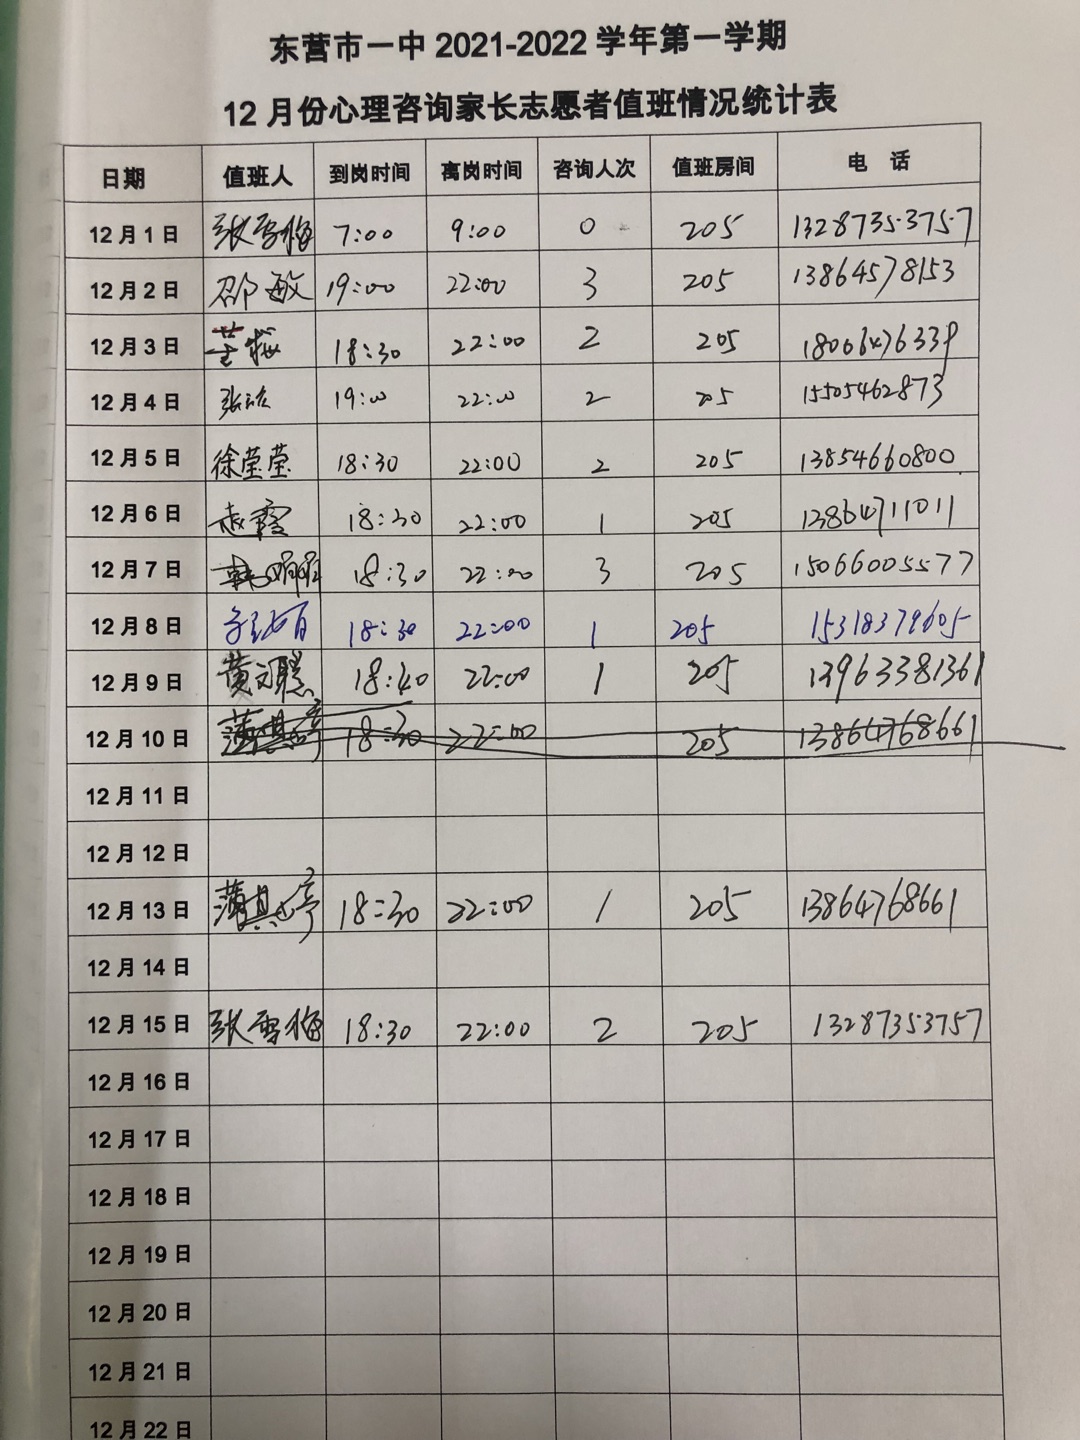 东营市一中 2021-2022 学年第一学期
12 月份心理咨询家长志愿者值班情况统计表
日期 值班人 到岗时间 离岗时间 咨询人次 值班房间 电 话
12 月 1 日 张雪梅 7:00 9:00 0 205 13287353757
12 月 2 日 邵敏 19:00 22:00 3 205 13864578153
12 月 3 日 18:30 22:00 2 205
12 月 4 日 19:00 22:00 2 205 15505462873
12 月 5 日 徐莹莹 18:30 22:00 2 205 13854660800
12 月 6 日 赵霞 18:30 22:00 1 205 13864711011
12 月 7 日 18:30 22:00 3 205 15066005577
12 月 8 日 18:30 22:00 1 205 15318379605
12 月 9 日 18:40 22:00 1 205 13963381361
12 月 10 日 18:30 22:00 205 13864768661
12 月 11 日
12 月 12 日
12 月 13 日 18:30 22:00 1 205 13864768661
12 月 14 日
12 月 15 日 张雪梅 18:30 22:00 2 205 13287353757
12 月 16 日
12 月 17 日
12 月 18 日
12 月 19 日
12 月 20 日
12 月 21 日
12 月 22 日